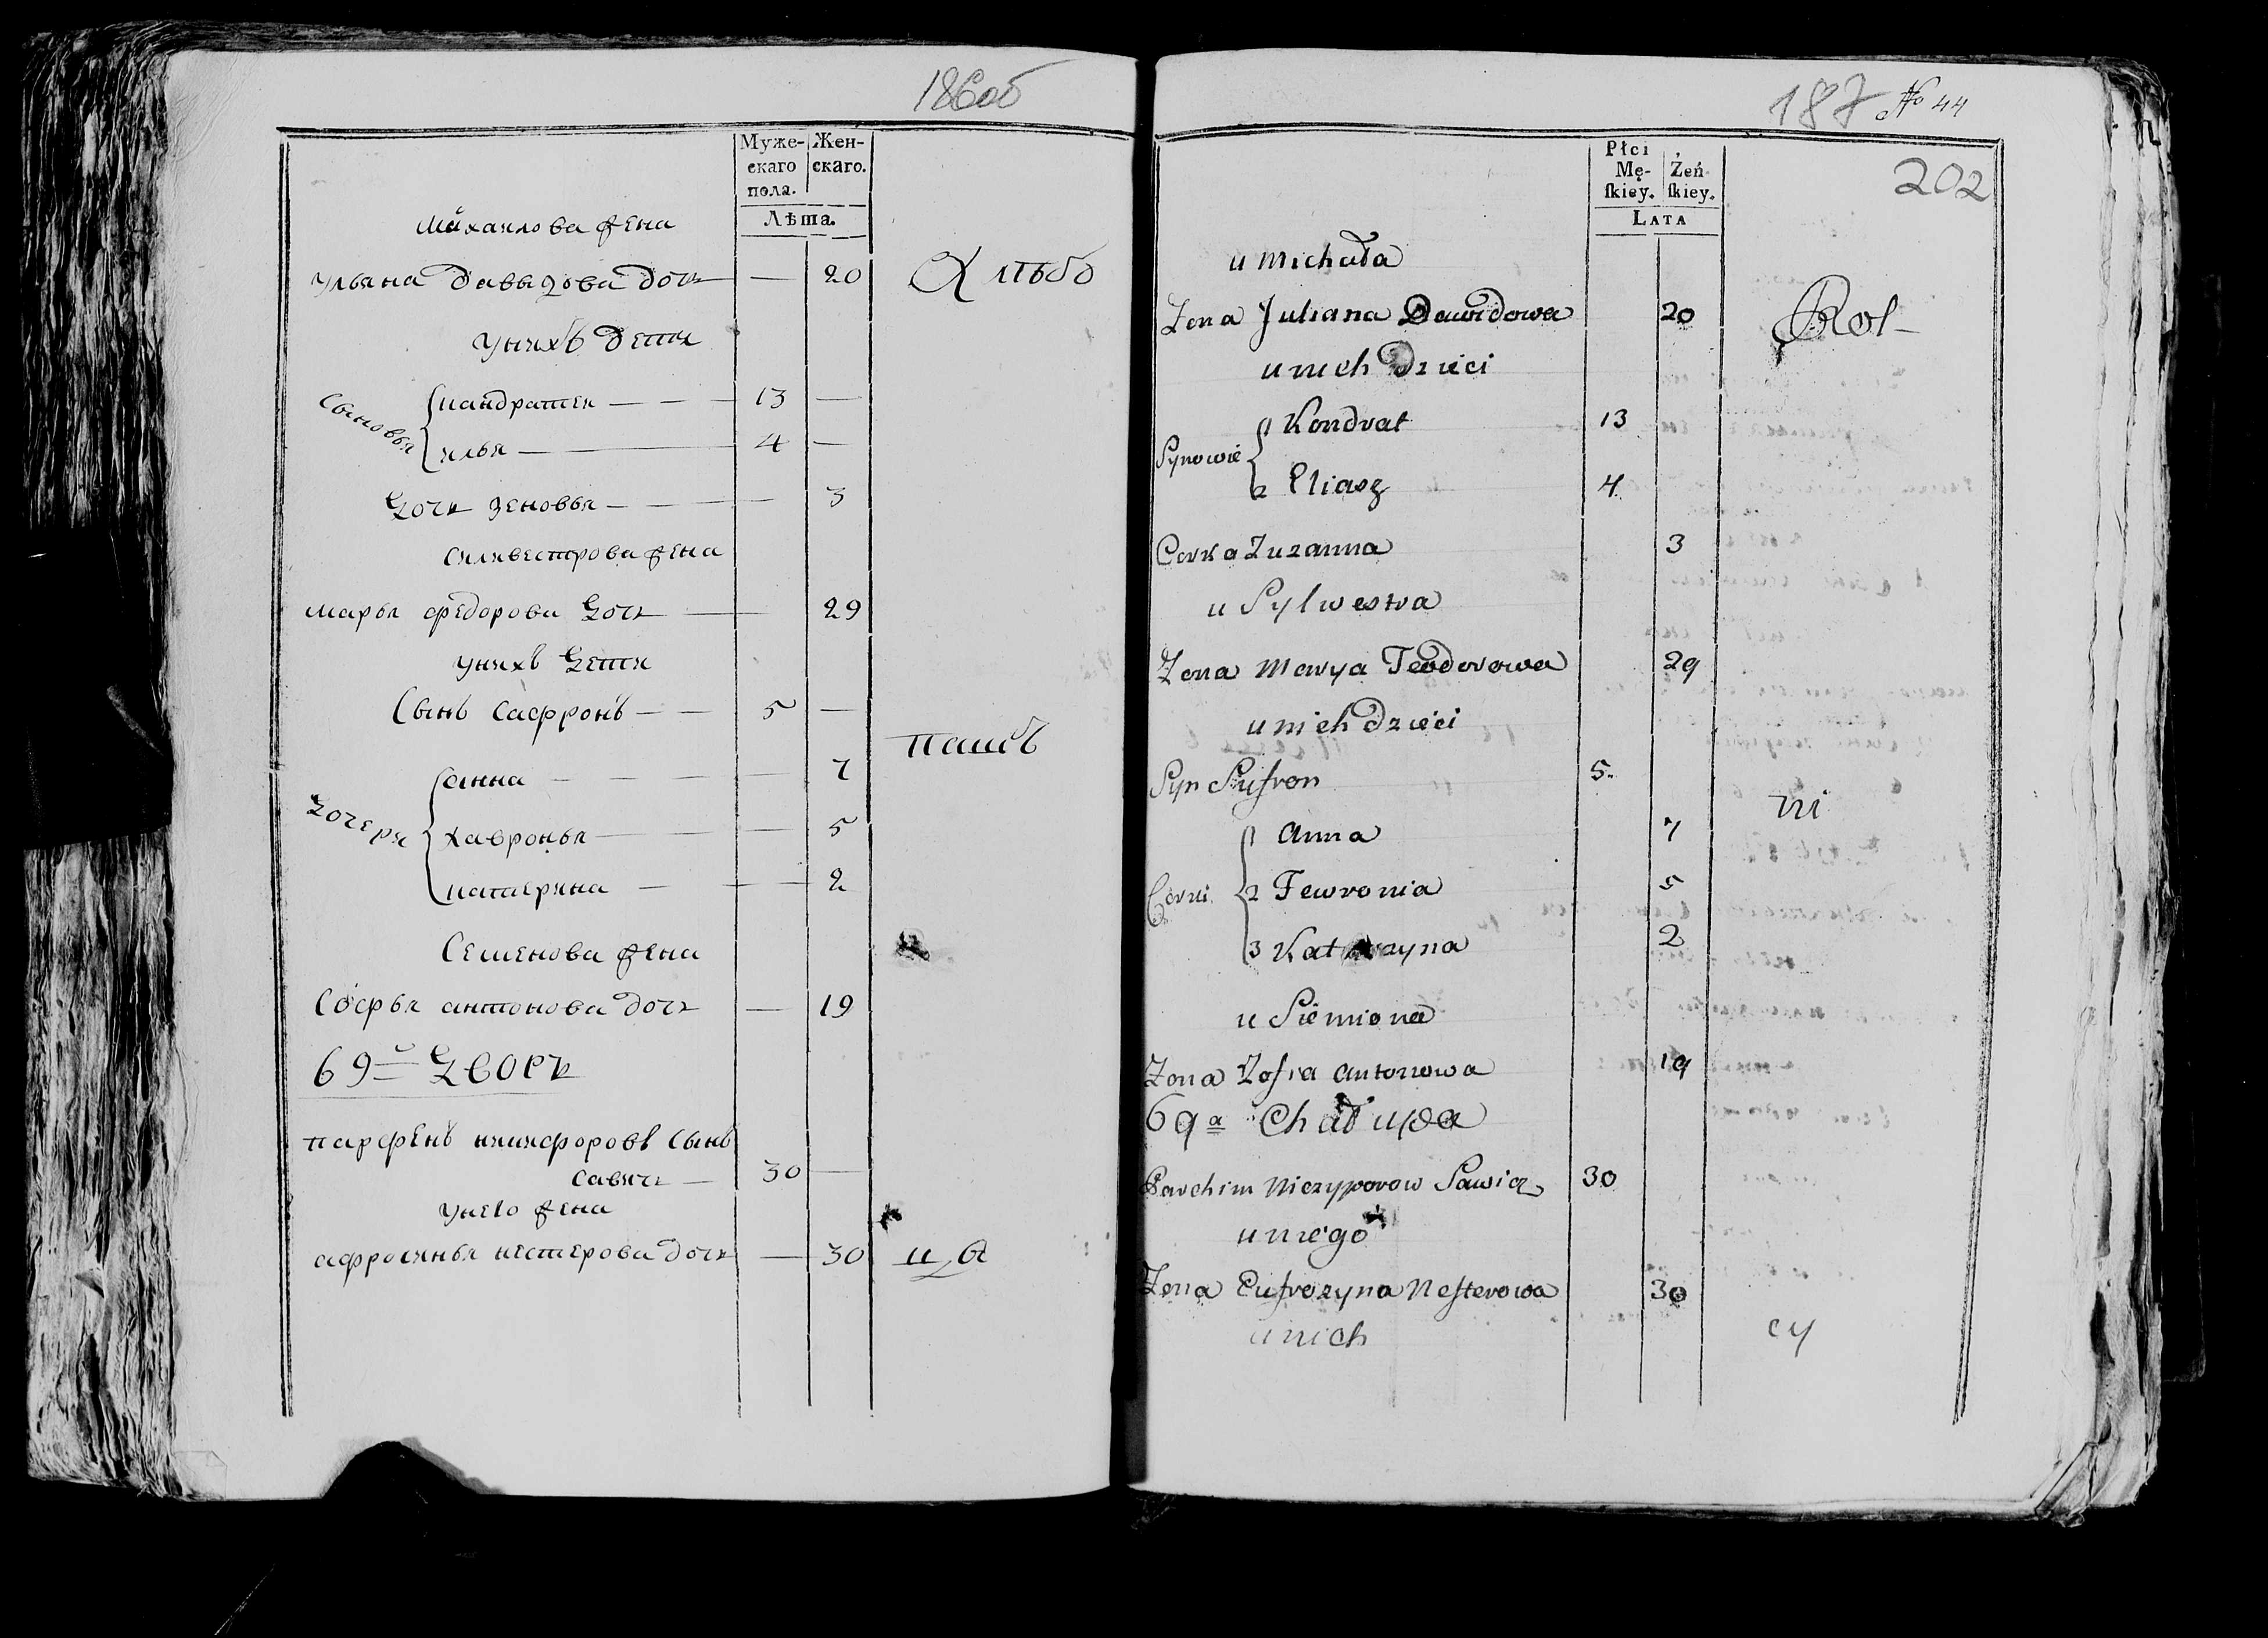 186об
Муже-
скаго
пола.
Жен-
скаго.
Лѣта.
Михаилова жена
Ульяна давыдова дочь — 20
Хлѣбо
унихъ дети
Сыновья
кандратеи — 13 —
илья — 4 —
дочь зеновья — 3
силивестрова жена
марья федорова дочь — 29
унихъ дети
Сынъ сафронъ — 5 —
пашъ
дочери
анна — 7
хавронья — 5
катерина — 2
Семенова жена
софья антонова дочь — 19
69й дворъ
парфенъ никифоровъ сынъ
савичь — 30 —
унего жена
афросинья нестерова дочь — 30
цы
187 № 44
202
Płci
Mę-
ſkiey.
Żeń-
ſkiey.
LATA
u Michała
Żona Juliana Dawidowa 20
Rol-
u nich dzieci
Synowie
1 Kondrat 13
2 Eliasz 4.
Corka Zuzanna 3
u Sylwestra
Żona Marya Teodorowa 29
u nich dzieci
Syn Sufron 5.
ni
Corki
1 Anna 7
2 Fewronia 5
3 Katarzyna 2
u Siemiona
Żona Zofia Antonowa 19
69a Chałupa
Parchim Niczyporow Sawicz 30
u niego
Żona Eufrozyna Nesterowa 30
u nich
cy